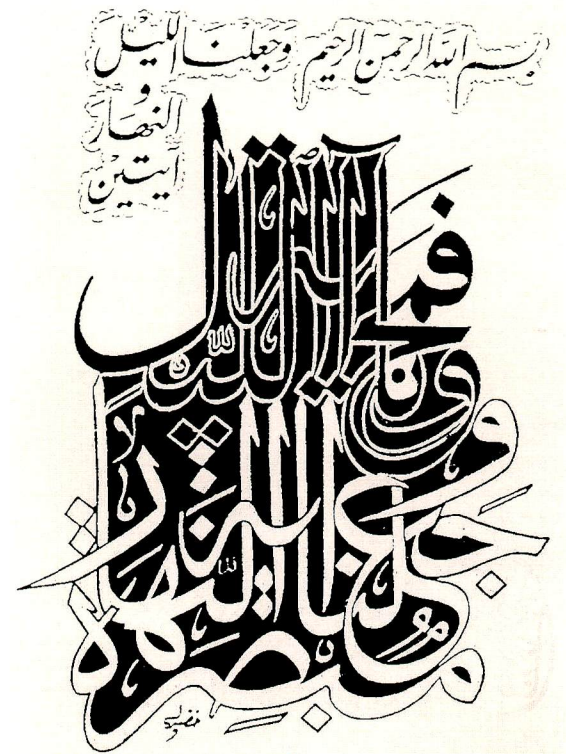 بسم الله الرحمن الرحيم وجعلنا الليل
و
النهار
آيتين
فمحونا آية الليل
وجعلنا آية النهار
مبصرة